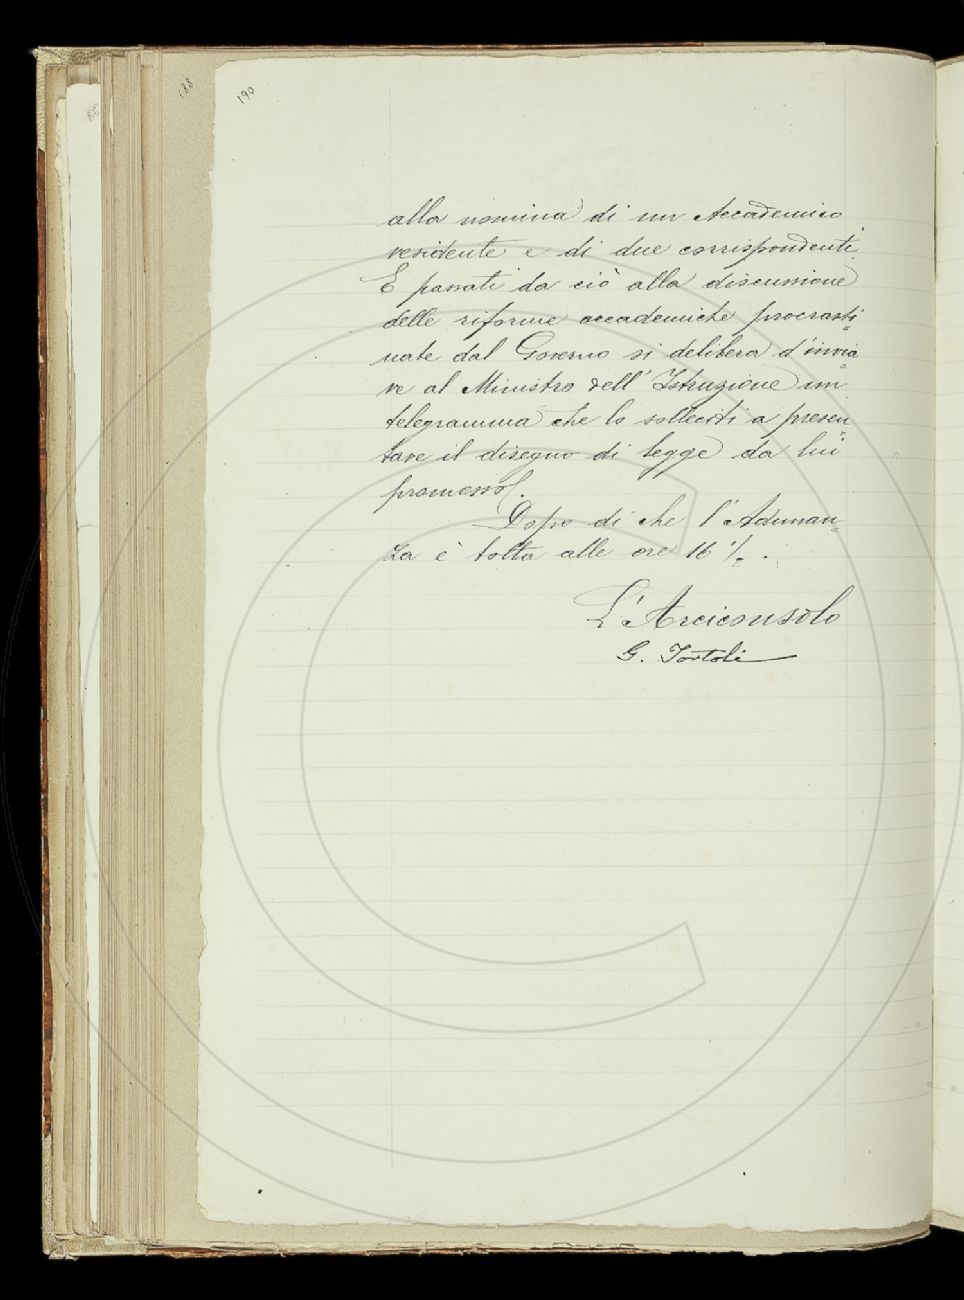 188
190
alla nomina di un Accademico
residente e di due corrispondenti.
E passati da ciò alla discussione
delle riforme accademiche procrasti=
nate dal Governo si delibera d'invia=
re al Ministro dell'Istruzione un
telegramma che lo solleciti a presen=
tare il disegno di legge da lui
promesso.
Dopo di che l'Adunan=
za è tolta alle ore 16 ½.
L'Arciconsolo
G. Tortoli